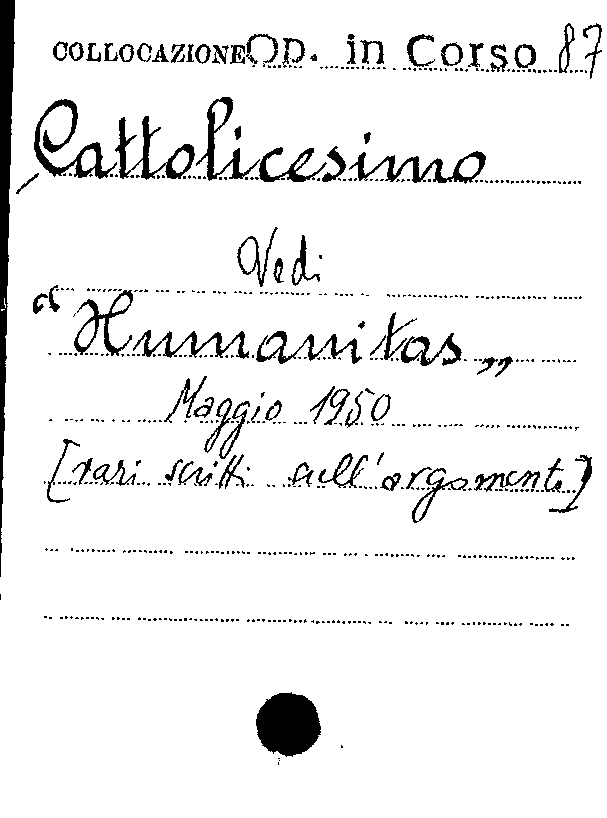 COLLOCAZIONE OD. in Corso 87
Cattolicesimo
Vedi
"Humanitas„
Maggio 1950
[vari scritti sull'argomento]